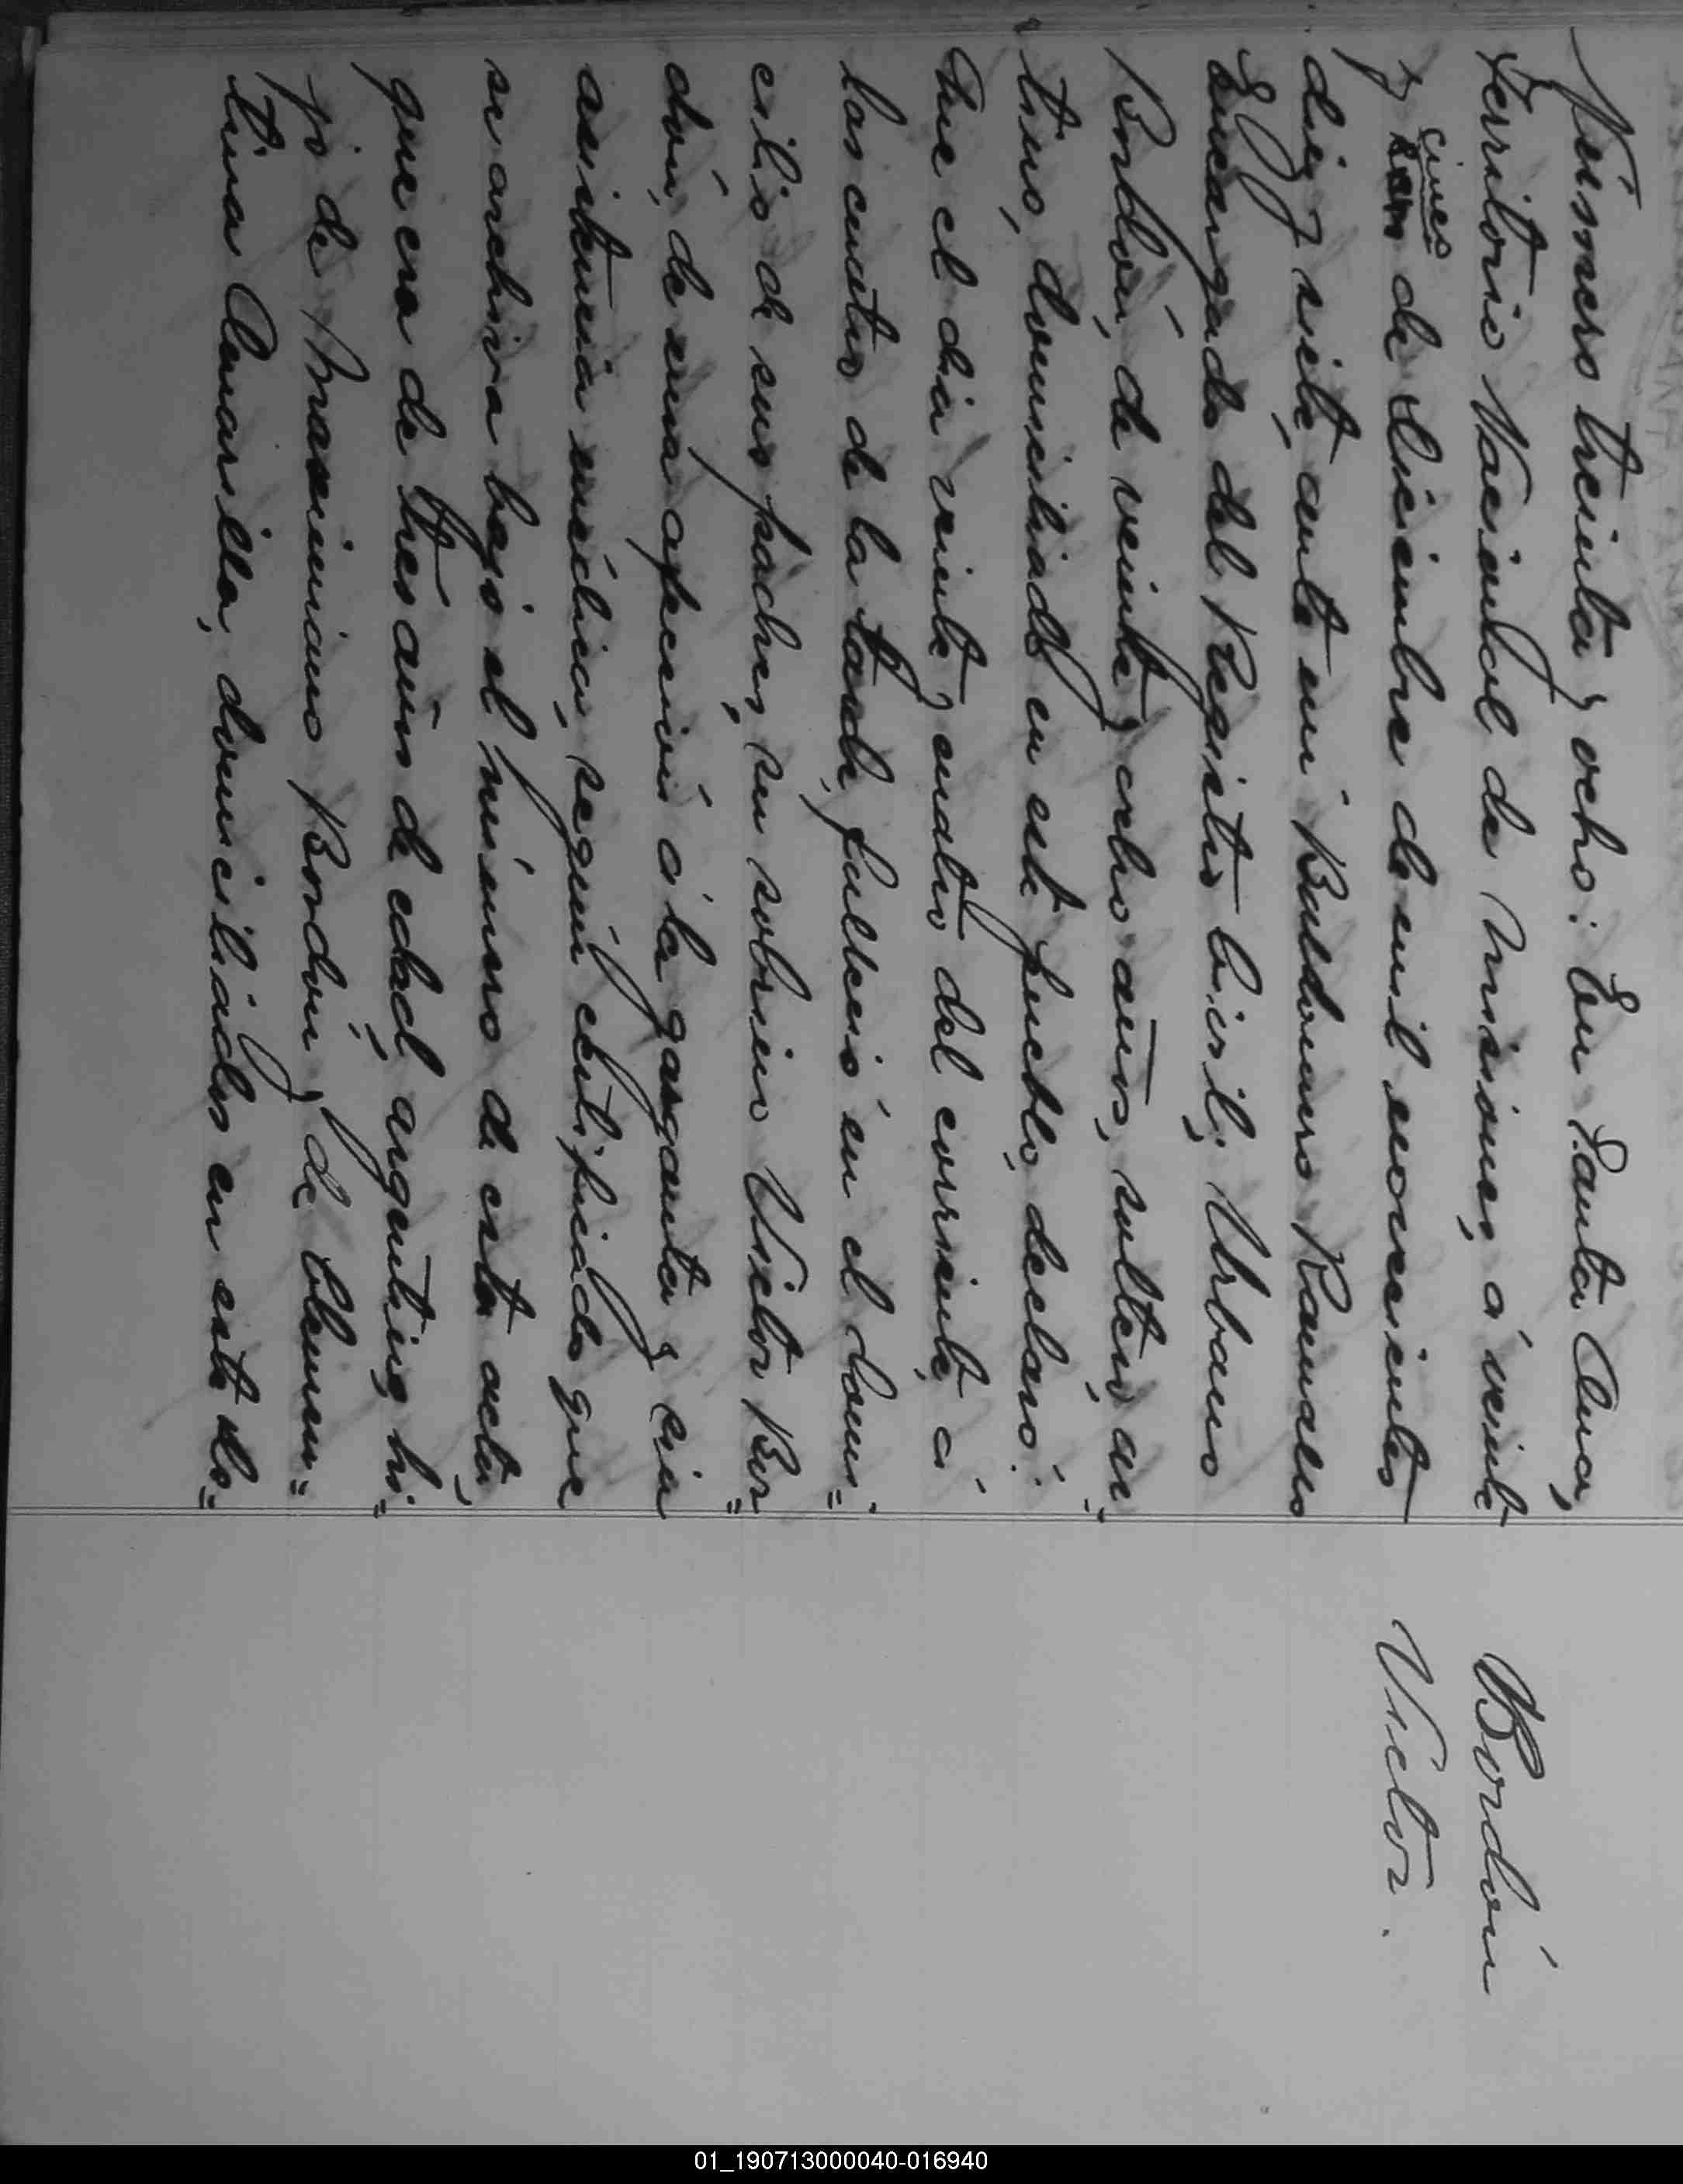 Número treinta y ocho: En Santa Ana,
Territorio Nacional de Misiones, á veinte
y cinco de Diciembre de mil novecientos
diez y siete, ante mi Baldomero Ramales
Encargado del Registro Civil; Urbano
Bordón, de veinte y ocho años, soltero, ar=
tino, domiciliado en este pueblo, declaró:
Que el dia veinte y cuatro del corriente á
las cuatro de la tarde, falleció en el domi=
cilio de sus padres, su sobrino Victor Bor=
dón, de una afección á la garganta y sin
asistencia médica, según certificado que
se archiva bajo el número de esta acta,
que era de tres años de edad, argentino, hi=
jo de Maximiano Bordón, y de Clemen=
tina Amarilla, domiciliados en este
Bordón
Victor.
01_190713000040-016940